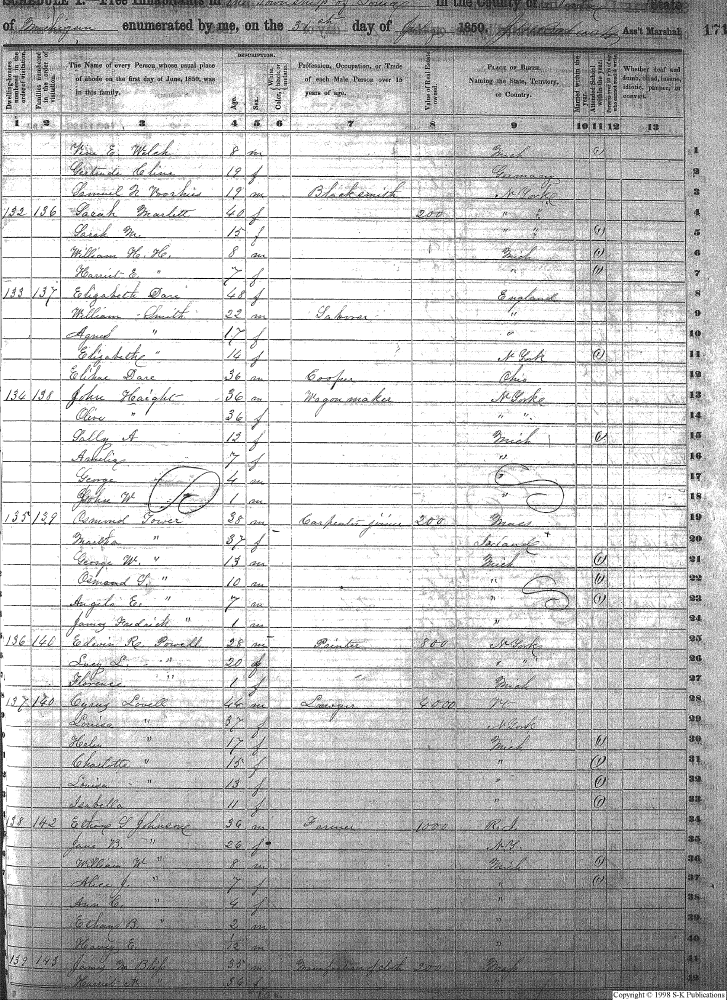 SCHEDULE I.—Free Inhabitants in the Township of in the County of State
of Michigan enumerated by me, on the day of 1850. Ass't Marshal 171
Dwelling-houses numbered in the order of visitation.
Families numbered in the order of visitation.
The Name of every Person whose usual place of abode on the first day of June, 1850, was in this family.
DESCRIPTION.
Age.
Sex.
Color
Profession, Occupation, or Trade of each Male Person over 15 years of age.
Value of Real Estate owned.
PLACE OF BIRTH. Naming the State, Territory, or Country.
Married within the year.
Attended School within the year.
Whether deaf and dumb, blind, insane, idiotic, pauper, or convict.
1 2 3 4 5 6 7 8 9 10 11 12 13
E. Welch 8 m Mich (1) 1
Gertrude Cline 19 f Germany 2
Samuel N Voorhies 19 m Blacksmith N York 3
132 136 Sarah Marlett 40 f 200 " " 4
Sarah M. 15 f " " (1) 5
William H. H. 8 m Mich (1) 6
Harriet E. " 7 f " (1) 7
133 137 Elizabeth Dare 48 f England 8
William Smith 22 m Laborer " 9
Agnes " 17 f " 10
Elizabeth " 14 f N York (1) 11
Elihu Dare 36 m Cooper Ohio 12
134 138 John Haight 36 m Wagon maker N York 13
Olive " 36 f " " 14
Sally A 13 f Mich (1) 15
Amelia 7 f " 16
George 4 m " 17
John W 1 m " 18
135 139 Osmond Tower 38 m Carpenter joiner 200 Mass 19
Martha " 37 f Ireland 20
George W. " 13 m Mich (1) 21
Osmond S. " 10 m " (1) 22
Angelo E. " 7 m " (1) 23
James Fredrick " 1 m 24
136 140 Edwin R. Powell 28 m Painter 800 N York 25
Lucy L. " 20 f " " 26
Florence " 1 f Mich 27
137 140 Cyrus Lovell 44 m Lawyer 6000 Vt 28
Louise " 37 f N York 29
Helen " 17 f Mich (1) 30
Charlotte " 15 f " (1) 31
Louisa " 13 f " (1) 32
Isabella 11 f " (1) 33
138 142 Ethan S Johnson 36 m Farmer 1000 R.I. 34
Jane B. " 26 f N.Y. 35
William W " 8 m Mich (1) 36
Alice J. " 7 f " (1) 37
Ann C. " 4 f " 38
Ethan B. " 2 m " 39
Harvey E. m " 40
139 143 James M 35 m 200 41
Harriet N. " 36 f
Copyright © 1998 S-K Publications